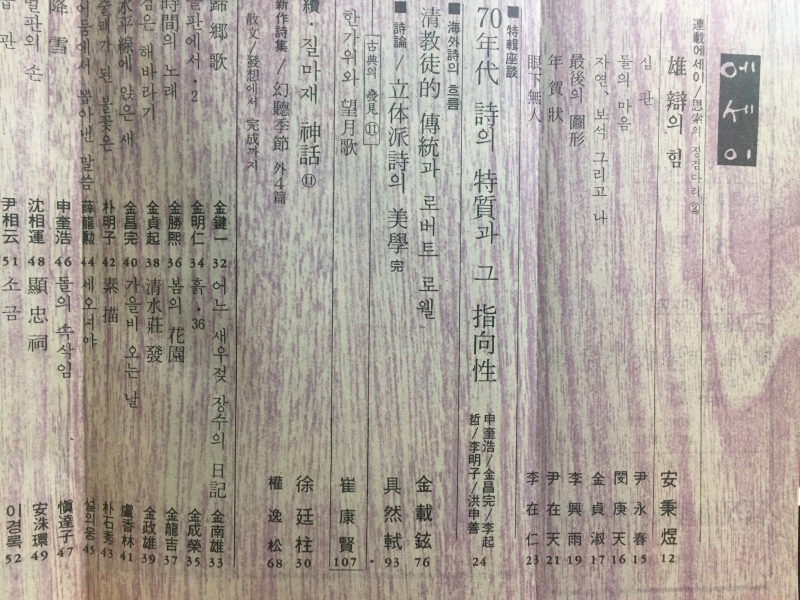 에세이
連載에세이/思索의 징검다리 ②
雄辯의 힘 安秉煜 12
심판 尹永春 15
돌의 마음 閔庚天 16
자연, 보석 그리고 나 金貞淑 17
最後의 圖形 李興雨 19
年賀狀 尹在天 21
眼下無人 李在仁 23
■特輯座談
70年代 詩의 特質과 그 指向性 申奎浩/金昌完/李起哲/李明子/洪申善 24
■海外詩의 흐름
清教徒的 傳統과 로버트 로웰 金載鉉 76
■詩論/立体派詩의 美學 完 具然軾 93
古典의 發見 ⑪
한가위와 望月歌 崔康賢 107
續·질마재 神話 ⑪ 徐廷柱 30
新作詩集/幻聽季節 外4篇 權逸松 68
散文/發想에서 完成까지
歸鄉歌 金鍵一 32
어느 새우젖 장수의 日記 金南雄 33
들판에서 2 金明仁 34
흙·36 金成榮 35
時間의 노래 金勝熙 36
봄의 花園 金龍吉 37
검은 해바라기 金貞起 38
清水莊 發 金政雄 39
水平線에 앉은 새 金昌完 40
가을비 오는 날 盧香林 41
된 불꽃은 朴明子 42
素描 朴石秀 43
어둠에서 뽑아낸 말씀 薛龍勳 44
세오녀야 설의웅 45
降雪 申奎浩 46
돌의 속삭임 愼達子 47
벌판의 손 沈相運 48
顯忠祠 安洙環 49
판 尹相云 51
소금 이경록 52